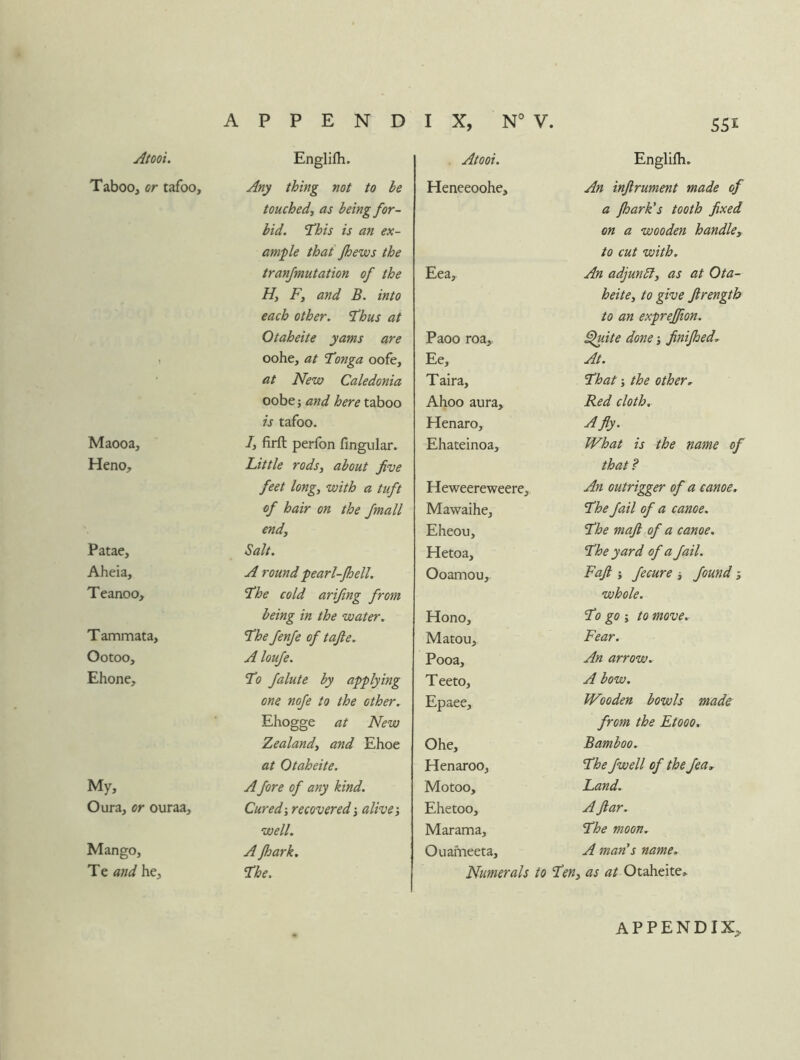 APPENDIX, N° V. 551
Atooi. Engliſh.
Taboo, or tafoo, Any thing not to be
touched, as being for-
bid. This is an ex-
ample that ſhews the
tranſmutation of the
H, F, and B. into
each other. Thus at
Otaheite yams are
oohe, at Tonga oofe,
at New Caledonia
oobe; and here taboo
is tafoo.
Maooa, I, firſt perſon ſingular.
Heno, Little rods, about five
feet long, with a tuft
of hair on the ſmall
end,
Patae, Salt.
Aheia, A round pearl-ſhell.
Teanoo, The cold ariſing from
being in the water.
Tammata, The ſenſe of taſte.
Ootoo, A louſe.
Ehone, To ſalute by applying
one noſe to the other.
Ehogge at New
Zealand, and Ehoe
at Otaheite.
My, A ſore of any kind.
Oura, or ouraa, Cured; recovered; alive;
well.
Mango, A ſhark.
Te and he, The.
Atooi. Engliſh.
Heneeoohe, An inſtrument made of
a ſhark's tooth fixed
on a wooden handle,
to cut with.
Eea, An adjunct, as at Ota-
heite, to give ſtrength
to an expreſſion.
Paoo roa, Quite done; finiſhed.
Ee, At.
Taira, That; the other.
Ahoo aura, Red cloth.
Henaro, A fly.
Ehateinoa, What is the name of
that?
Heweereweere, An outrigger of a canoe.
Mawaihe, The ſail of a canoe.
Eheou, The maſt of a canoe.
Hetoa, The yard of a ſail.
Ooamou, Faſt; ſecure; ſound;
whole.
Hono, To go; to move.
Matou, Fear.
Pooa, An arrow.
Teeto, A bow.
Epaee, Wooden bowls made
from the Etooo.
Ohe, Bamboo.
Henaroo, The ſwell of the ſea.
Motoo, Land.
Ehetoo, A ſtar.
Marama, The moon.
Ouameeta, A man's name.
Numerals to Ten, as at Otaheite.
APPENDIX,